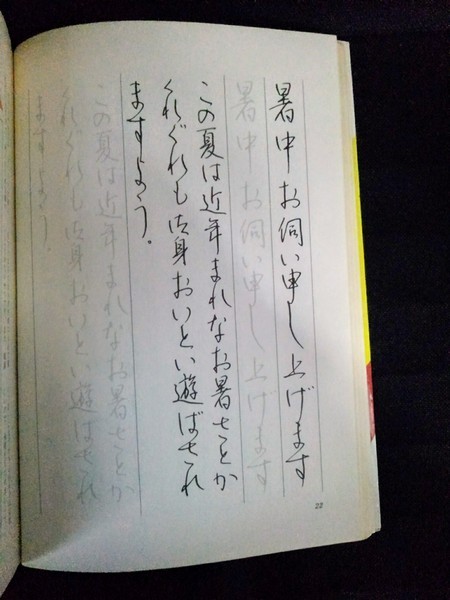 暑中お伺い申し上げます
暑中お伺い申し上げます
この夏は近年まれなお暑さとか
くれぐれも御身おいとい遊ばされ
ますよう。
この夏は近年まれなお暑さとか
くれぐれも御身おいとい遊ばされ
ますよう。
22